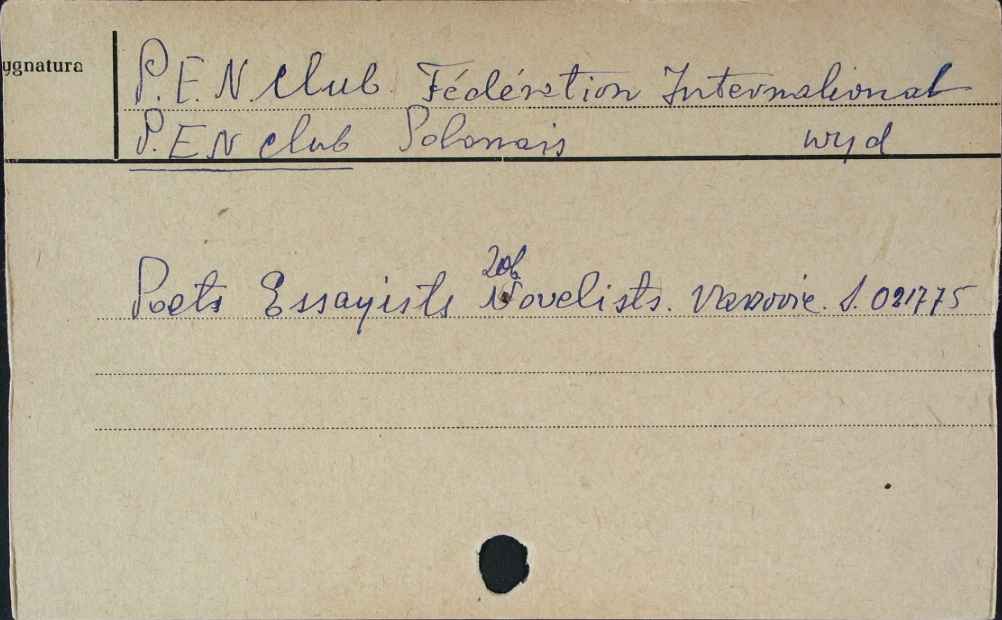 ygnatura
P.E.N. Club. Fédération International
P.EN club Polonais wyd
zob
Poets Essayists Novelists. Varsovie. S. 021775